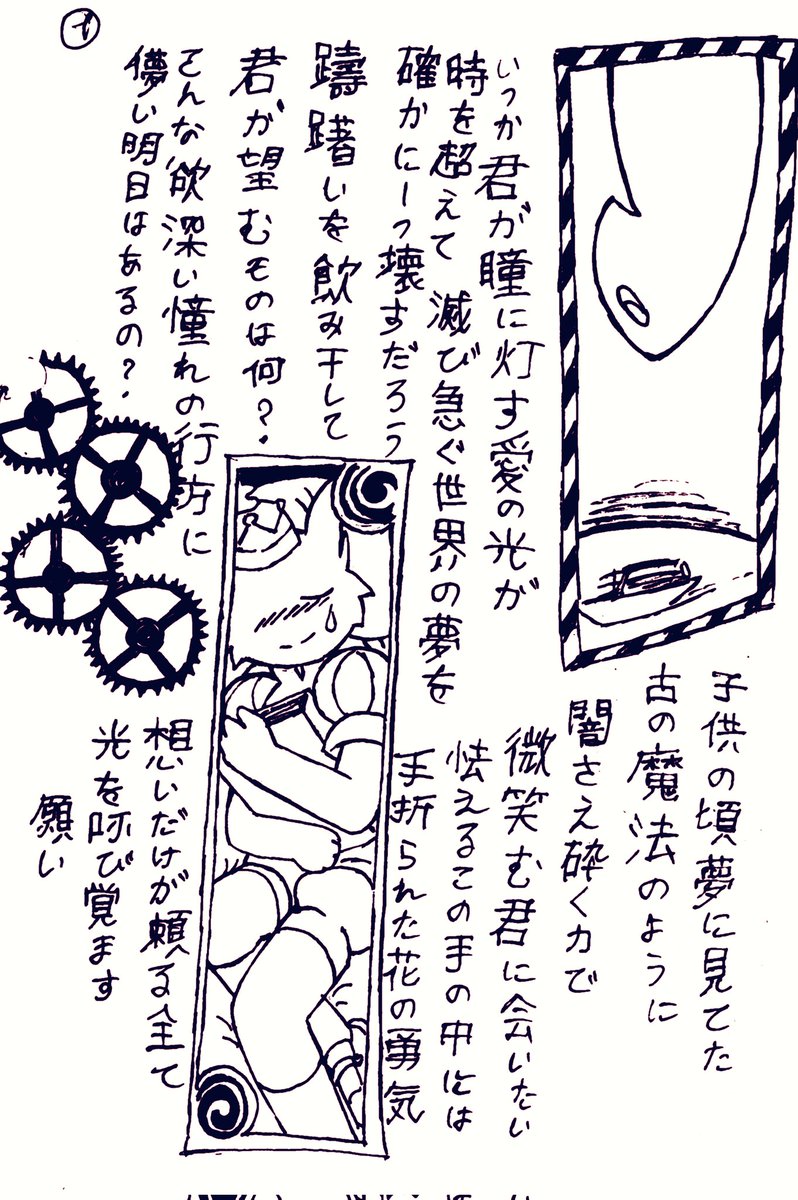 いつか君が瞳に灯す愛の光が
時を超えて 滅び急ぐ世界の夢を
確かに一つ壊すだろう
躊躇いを飲み干して
君が望むものは何?
こんな欲深い憧れの行方に
儚い明日はあるの?
子供の頃夢に見てた
古の魔法のように
闇さえ砕く力で
微笑む君に会いたい
怯えるこの手の中には
手折られた花の勇気
想いだけが頼る全て
光を呼び覚ます
願い